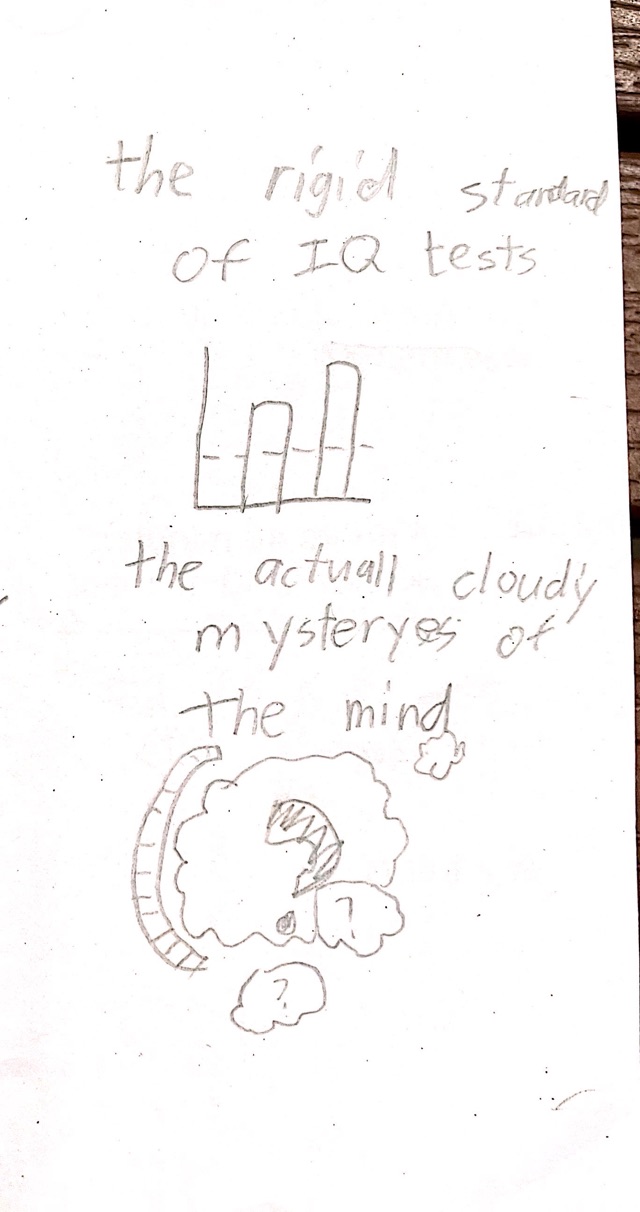 the rigid standard
of IQ tests
the actuall cloudy
mysteryes of
the mind
?
?
?